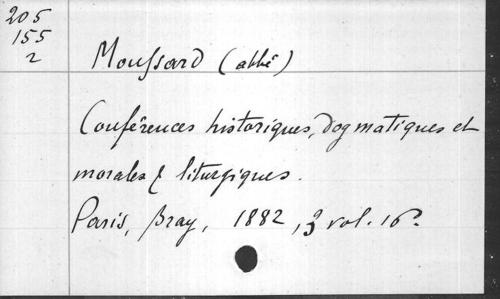 205
155
2
Moussard (abbé)
Conférences historiques, dogmatiques et
morales & liturgiques.
Paris, Bray, 1882, vol. 16º.